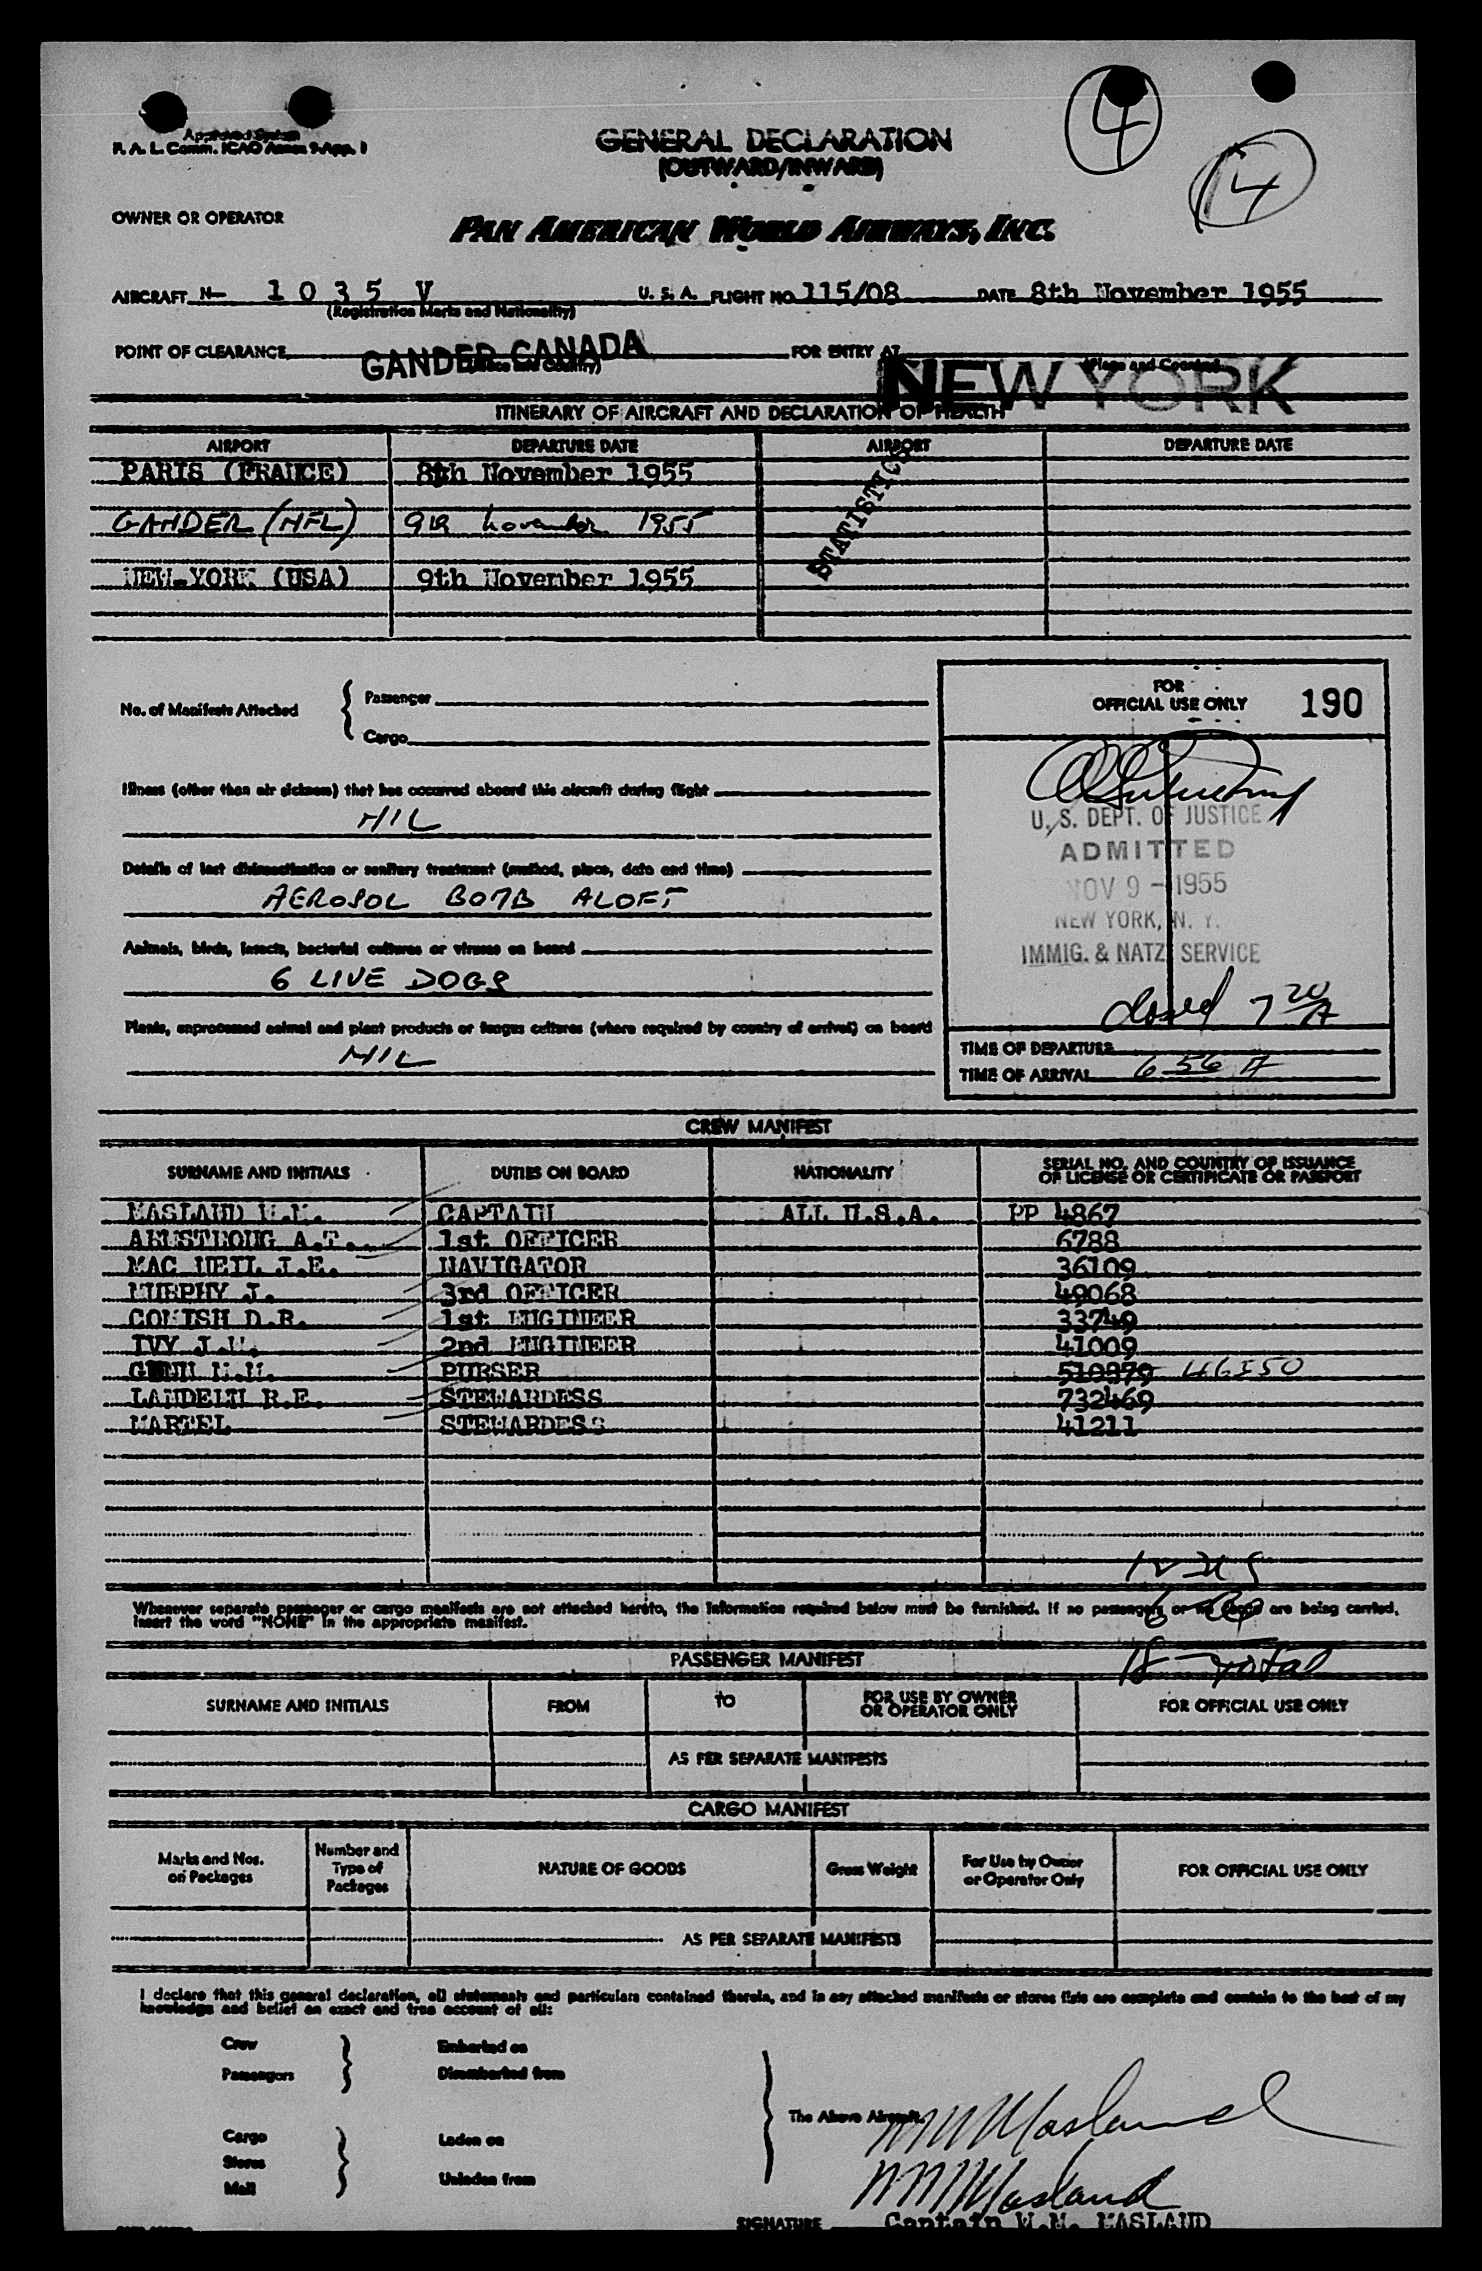 4
4
Approved System
F. A. L. Comm. ICAO Annex 9-App. 1
GENERAL DECLARATION
(OUTWARD/INWARD)
OWNER OR OPERATOR
PAN AMERICAN WORLD AIRWAYS, INC.
AIRCRAFT N- 1035 V U. S. A. FLIGHT NO. 115/08 DATE 8th November 1955
(Registration Marks and Nationality)
POINT OF CLEARANCE GANDER CANADA FOR ENTRY AT NEW YORK
(Place and Country) (Place and Country)
ITINERARY OF AIRCRAFT AND DECLARATION OF HEALTH
AIRPORT DEPARTURE DATE AIRPORT DEPARTURE DATE
PARIS (FRANCE) 8th November 1955
GANDER (NFL) 9th November 1955
STATISTICS
NEW-YORK (USA) 9th November 1955
No. of Manifests Attached { Passenger
Cargo
FOR
OFFICIAL USE ONLY 190
Illness (other than air sickness) that has occurred aboard this aircraft during flight
NIL
Details of last disinsectization or sanitary treatment (method, place, date and time)
AEROSOL BOMB ALOFT
Animals, birds, insects, bacterial cultures or viruses on board
6 LIVE DOGS
Plants, unprocessed animal and plant products or fungus cultures (where required by country of arrival) on board
NIL
U. S. DEPT. OF JUSTICE
ADMITTED
NOV 9 - 1955
NEW YORK, N. Y.
IMMIG. & NATZ. SERVICE
closed 7 20 A
TIME OF DEPARTURE
TIME OF ARRIVAL 6 56 A
CREW MANIFEST
SURNAME AND INITIALS DUTIES ON BOARD NATIONALITY SERIAL NO. AND COUNTRY OF ISSUANCE
OF LICENSE OR CERTIFICATE OR PASSPORT
MASLAND W.M. CAPTAIN ALL U.S.A. PP 4867
ARMSTRONG A.T. 1st OFFICER 6788
MAC NEIL J.E. NAVIGATOR 36109
MURPHY J. 3rd OFFICER 49068
COMISH D.R. 1st ENGINEER 33749
IVY J.W. 2nd ENGINEER 41009
PURSER 510879 46150
LANDELM R.E. STEWARDESS 732469
MARTEL STEWARDESS 41211
Whenever separate passenger or cargo manifests are not attached hereto, the information required below must be furnished. If no passengers or no cargo are being carried,
insert the word "NONE" in the appropriate manifest.
18 - Total
PASSENGER MANIFEST
SURNAME AND INITIALS FROM TO FOR USE BY OWNER
OR OPERATOR ONLY FOR OFFICIAL USE ONLY
AS PER SEPARATE MANIFESTS
CARGO MANIFEST
Marks and Nos.
on Packages Number and
Type of
Packages NATURE OF GOODS Gross Weight For Use by Owner
or Operator Only FOR OFFICIAL USE ONLY
AS PER SEPARATE MANIFESTS
I declare that this general declaration, all statements and particulars contained therein, and in any attached manifests or stores lists are complete and contain to the best of my
knowledge and belief an exact and true account of all:
Crew Embarked on
Passengers Disembarked from
The Above Aircraft.
WM Masland
Cargo Laden on
Stores
Mail Unladen from
WM Masland
SIGNATURE Captain W.M. MASLAND